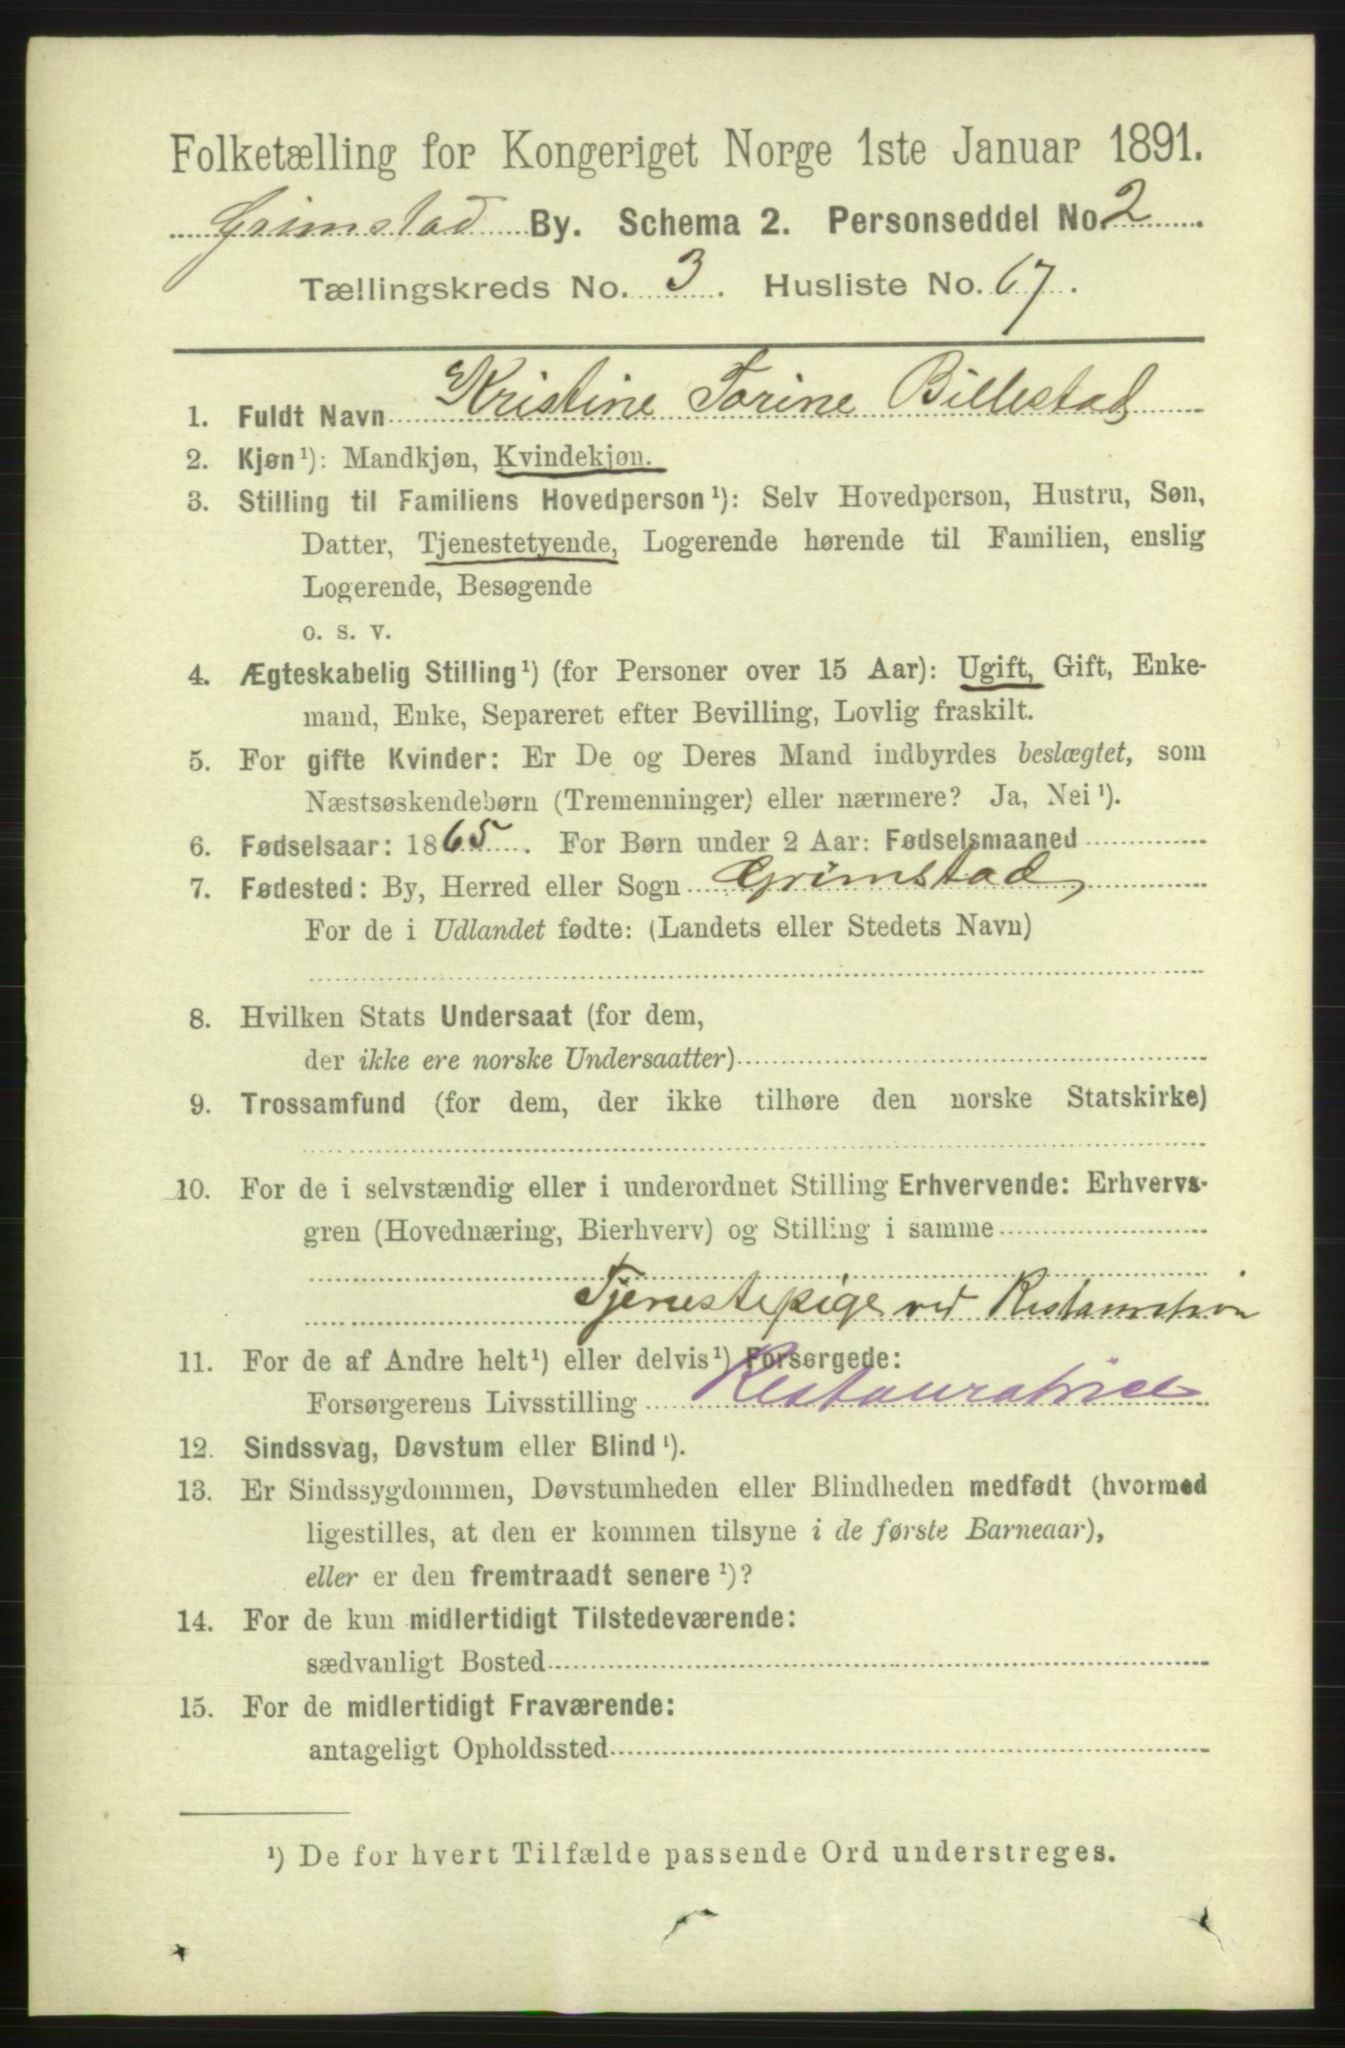 Folketælling for Kongeriget Norge 1ste Januar 1891.
Grimstad By. Schema 2. Personseddel No. 2.
Tællingskreds No. 3. Husliste No. 67.
1. Fuldt Navn Kristine Torine Billestad
2. Kjøn¹): Mandkjøn, Kvindekjøn.
3. Stilling til Familiens Hovedperson¹): Selv Hovedperson, Hustru, Søn,
Datter, Tjenestetyende, Logerende hørende til Familien, enslig
Logerende, Besøgende
o. s. v.
4. Ægteskabelig Stilling¹) (for Personer over 15 Aar): Ugift, Gift, Enke-
mand, Enke, Separeret efter Bevilling, Lovlig fraskilt.
5. For gifte Kvinder: Er De og Deres Mand indbyrdes beslægtet, som
Næstsøskendebørn (Tremenninger) eller nærmere? Ja, Nei¹).
6. Fødselsaar: 1865. For Børn under 2 Aar: Fødselsmaaned
7. Fødested: By, Herred eller Sogn Grimstad
For de i Udlandet fødte: (Landets eller Stedets Navn)
8. Hvilken Stats Undersaat (for dem,
der ikke ere norske Undersaatter)
9. Trossamfund (for dem, der ikke tilhøre den norske Statskirke)
10. For de i selvstændig eller i underordnet Stilling Erhvervende: Erhvervs-
gren (Hovednæring, Bierhverv) og Stilling i samme
Tjenestepige ved Restauration
11. For de af Andre helt¹) eller delvis¹) Forsørgede:
Forsørgerens Livsstilling Restauratrice
12. Sindssvag, Døvstum eller Blind¹).
13. Er Sindssygdommen, Døvstumheden eller Blindheden medfødt (hvormed
ligestilles, at den er kommen tilsyne i de første Barneaar),
eller er den fremtraadt senere¹)?
14. For de kun midlertidigt Tilstedeværende:
sædvanligt Bosted
15. For de midlertidigt Fraværende:
antageligt Opholdssted
¹) De for hvert Tilfælde passende Ord understreges.